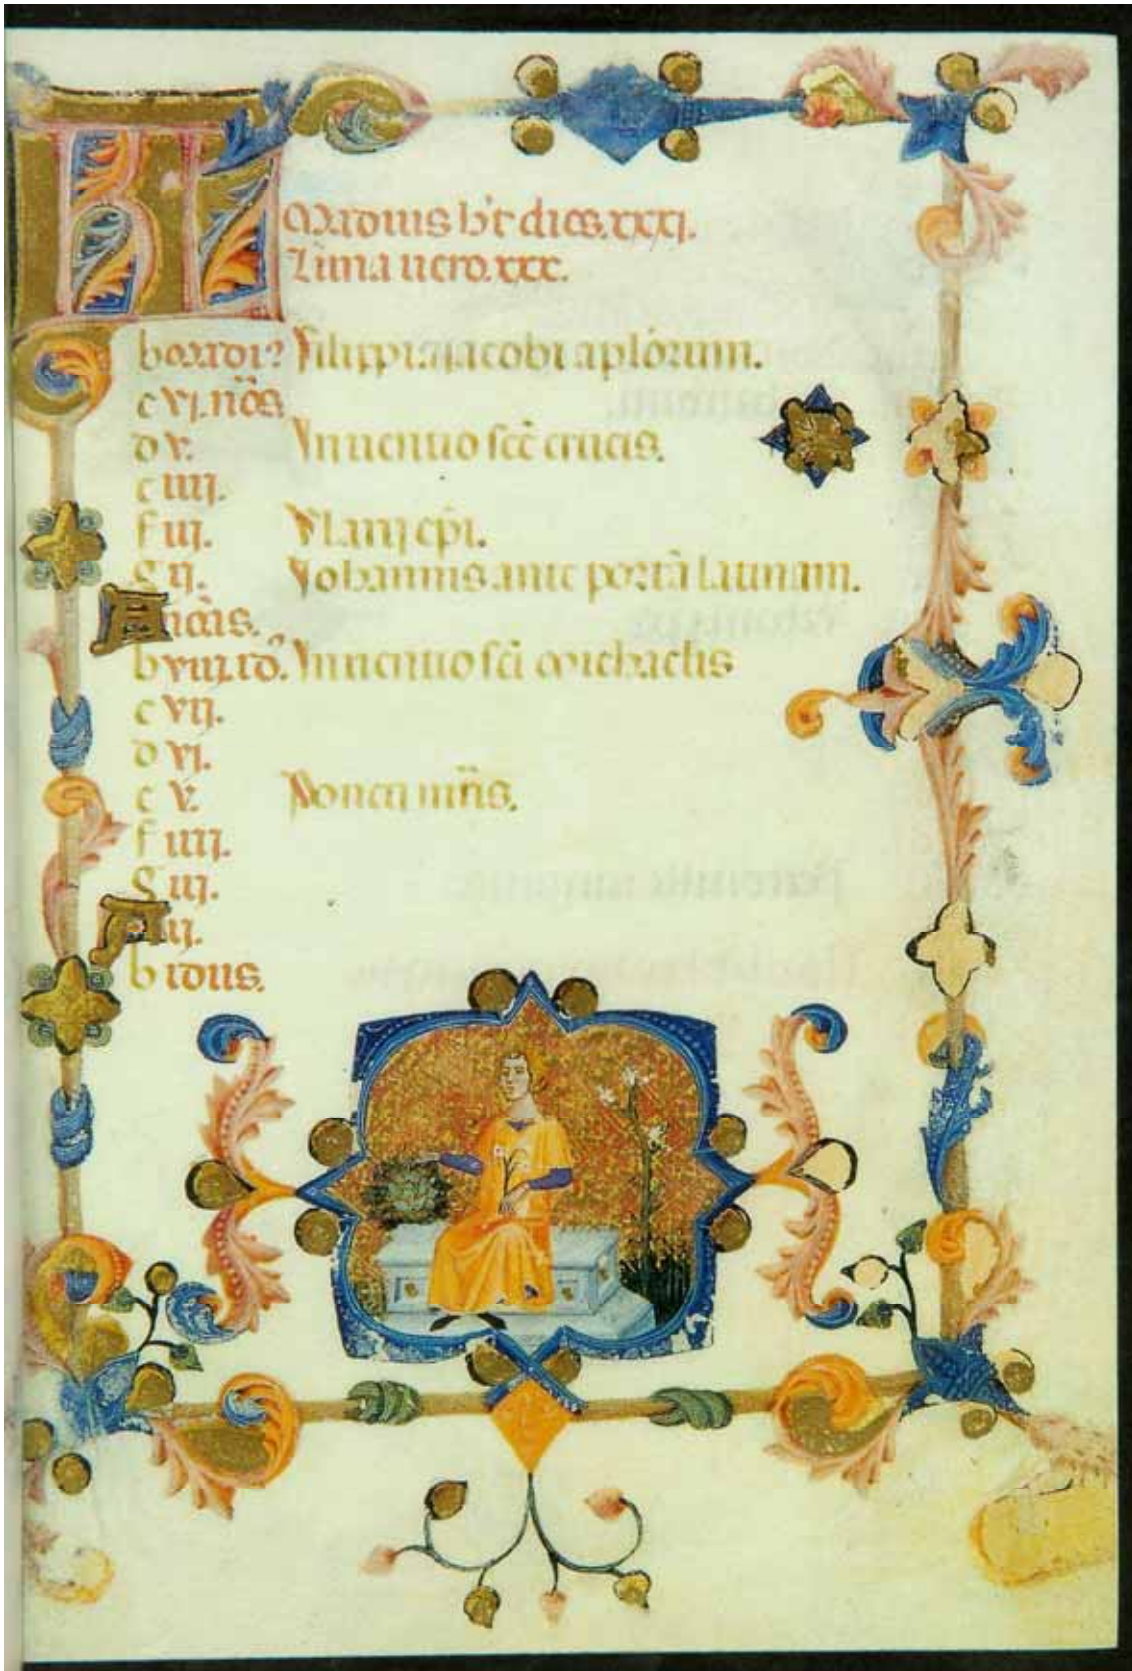 KL
Madius h't dies .xxxi.
Luna uero .xxx.
b Madi9 Filippi ⁊ Jacobi aplorum.
c vj. nōs
d v. Inuentio scē crucis.
e iiij.
f iij. epi.
g ij. Iohannis ante portā latinam.
A nōis.
b viij. id9. Inuentio sci Michaelis
c vij.
d vj.
e v. Poncij mris.
f iiij.
g iij.
A ij.
b idus.